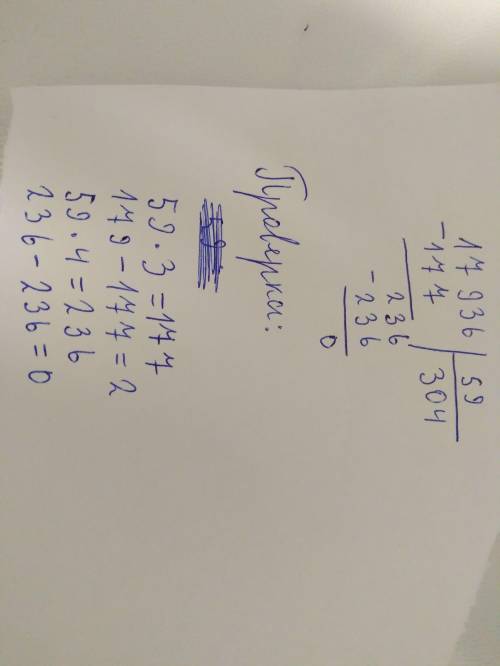 17936 59
-177 304
236
-236
0
Проверка:
59·3=177
179-177=2
59·4=236
236-236=0